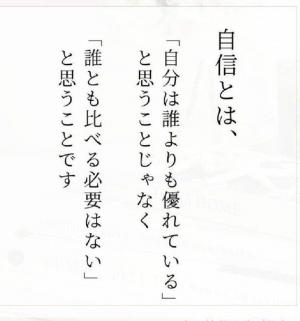 自信とは、
「自分は誰よりも優れている」
と思うことじゃなく
「誰とも比べる必要はない」
と思うことです